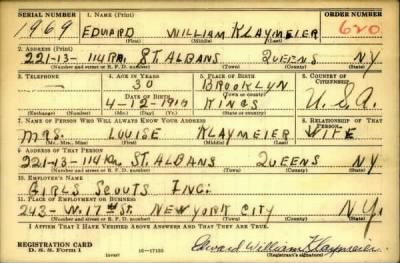 SERIAL NUMBER 1. NAME (Print) ORDER NUMBER
1969 EDWARD WILLIAM KLAYMEIER 620
(First) (Middle) (Last)
2. ADDRESS (Print)
221-13- 114 RD. ST. ALBANS QUEENS N.Y.
(Number and street or R. F. D. number) (Town) (County) (State)
3. TELEPHONE 4. AGE IN YEARS 5. PLACE OF BIRTH 6. COUNTRY OF CITIZENSHIP
— 30 BROOKLYN
DATE OF BIRTH (Town or county) U.S.A.
4-12-1910 KINGS
(Exchange) (Number) (Mo.) (Day) (Yr.) (State or country)
7. NAME OF PERSON WHO WILL ALWAYS KNOW YOUR ADDRESS 8. RELATIONSHIP OF THAT PERSON
MRS. LOUISE KLAYMEIER WIFE
(Mr., Mrs., Miss) (First) (Middle) (Last)
9. ADDRESS OF THAT PERSON
221-13- 114 RD. ST. ALBANS QUEENS N.Y.
(Number and street or R. F. D. number) (Town) (County) (State)
10. EMPLOYER'S NAME
GIRLS SCOUTS INC.
11. PLACE OF EMPLOYMENT OR BUSINESS
243- W. 17TH ST. NEW YORK CITY N.Y.
(Number and street or R. F. D. number) (Town) (County) (State)
I AFFIRM THAT I HAVE VERIFIED ABOVE ANSWERS AND THAT THEY ARE TRUE.
REGISTRATION CARD
D. S. S. Form 1 16-17105 Edward William Klaymeier
(Registrant's signature)